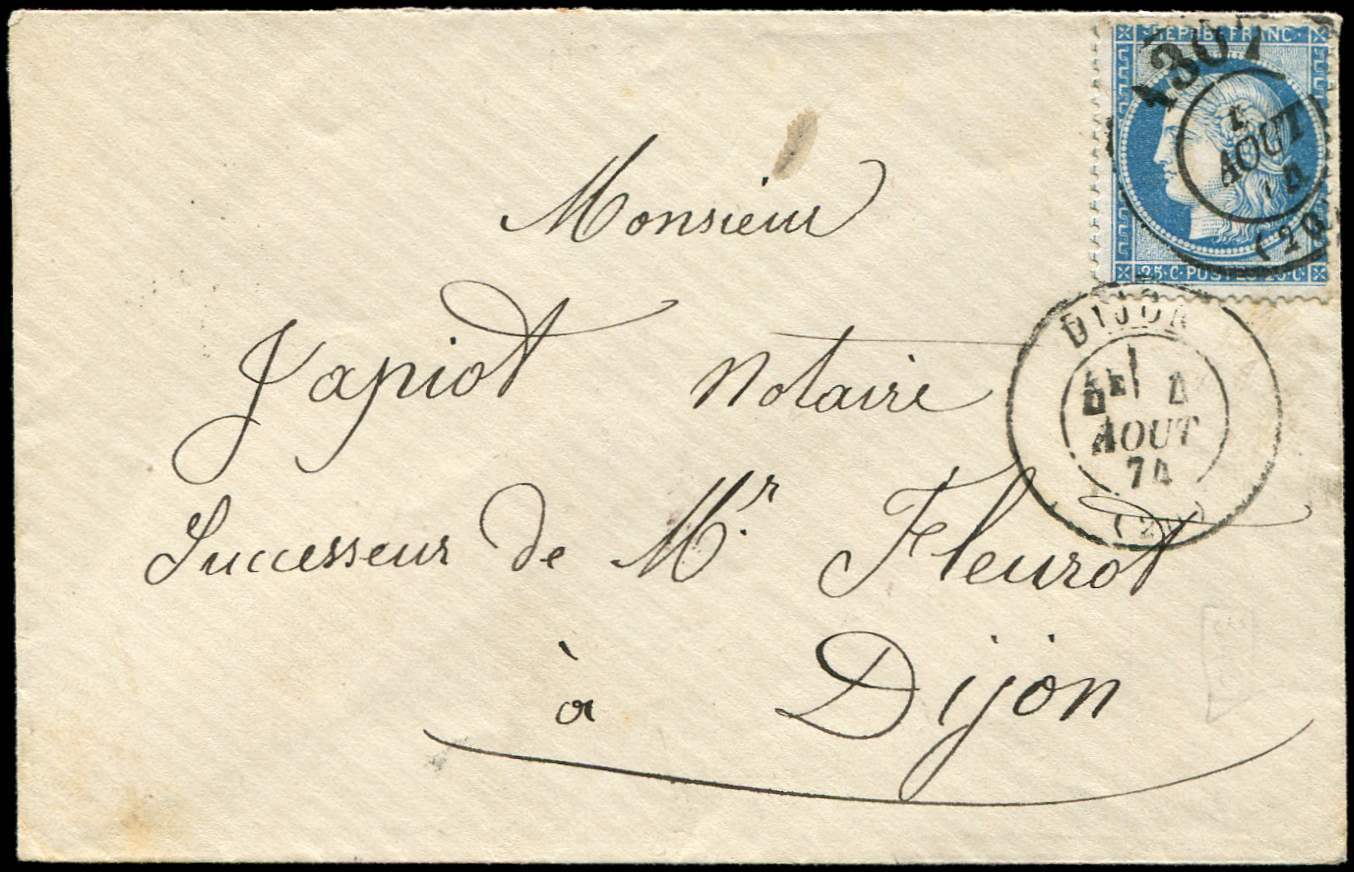 REPUB. FRANC.
1307
AOUT
25·C·POSTES·25·C
(20)
DIJON
4
AOUT
74
Monsieur
Japiot Notaire
Successeur de Mr. Fleurot
à Dijon